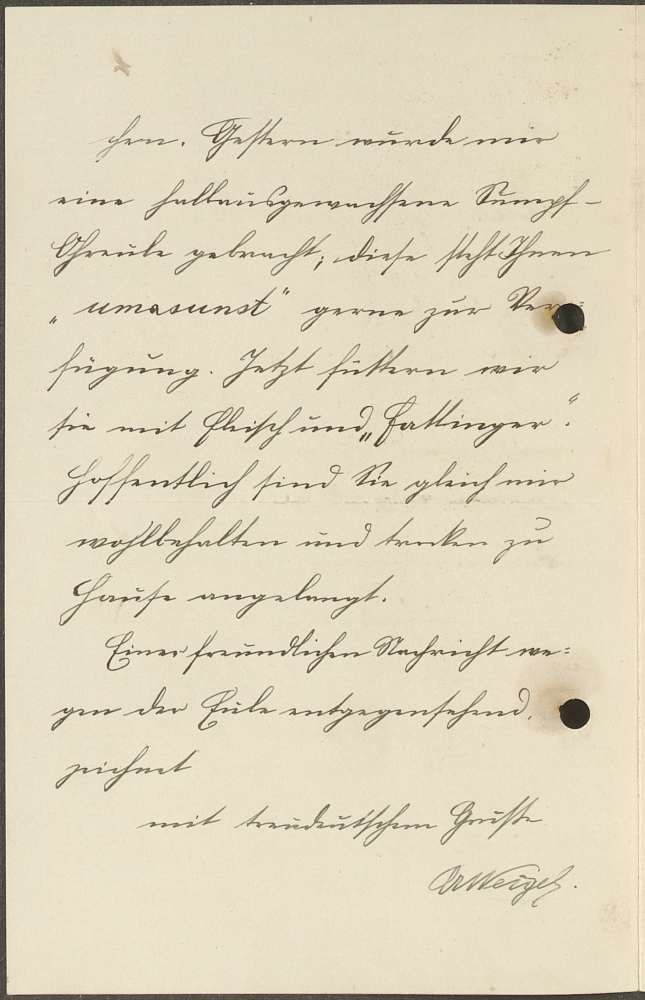 chen. Gestern wurde mir
eine halbausgewachsene Sumpf-
Ohreule gebracht; diese steht Ihnen
„umasunst" gerne zur Ver-
fügung. Jetzt füttern wir
sie mit Fleisch und „Fattinger".
Hoffentlich sind Sie gleich mir
wohlbehalten und trocken zu
Hause angelangt.
Einer freundlichen Nachricht we-
gen der Eule entgegensehend,
zeichnet
mit treudeutschem Gruße
Weigel.